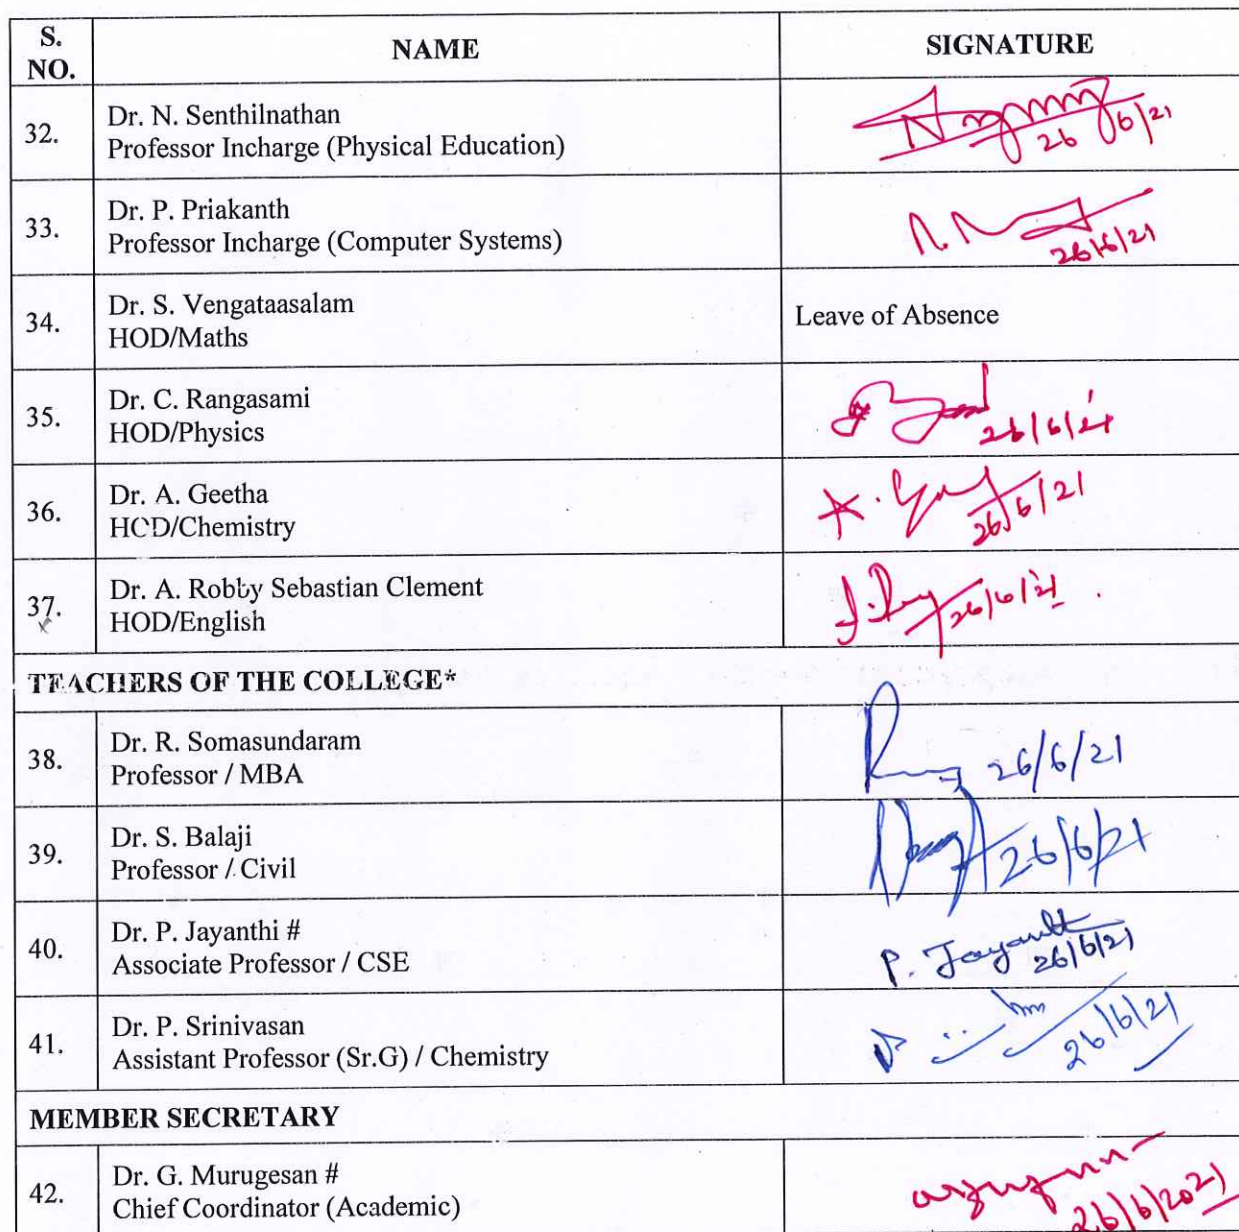 S. NO. NAME SIGNATURE
32. Dr. N. Senthilnathan
Professor Incharge (Physical Education)
26/6/21
33. Dr. P. Priakanth
Professor Incharge (Computer Systems)
26/6/21
34. Dr. S. Vengataasalam
HOD/Maths
Leave of Absence
35. Dr. C. Rangasami
HOD/Physics
26/6/21
36. Dr. A. Geetha
HOD/Chemistry
26/6/21
37. Dr. A. Robby Sebastian Clement
HOD/English
26/6/21
TEACHERS OF THE COLLEGE*
38. Dr. R. Somasundaram
Professor / MBA
26/6/21
39. Dr. S. Balaji
Professor / Civil
26/6/21
40. Dr. P. Jayanthi #
Associate Professor / CSE
P. Jayanthi
26/6/21
41. Dr. P. Srinivasan
Assistant Professor (Sr.G) / Chemistry
26/6/21
MEMBER SECRETARY
42. Dr. G. Murugesan #
Chief Coordinator (Academic)
26/6/2021